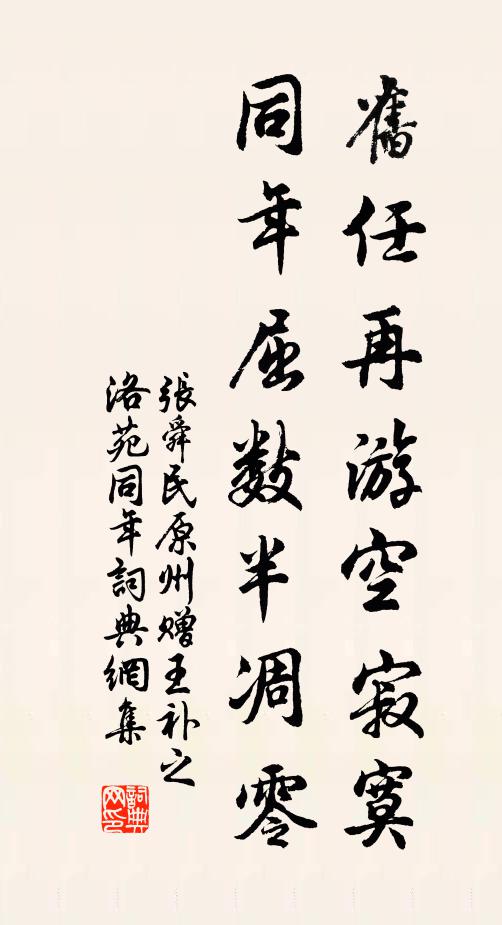 舊任再游空寂寞
同年屈数半凋零
張舜民原州赠王补之
洛苑同年詞典網集
詞典网印